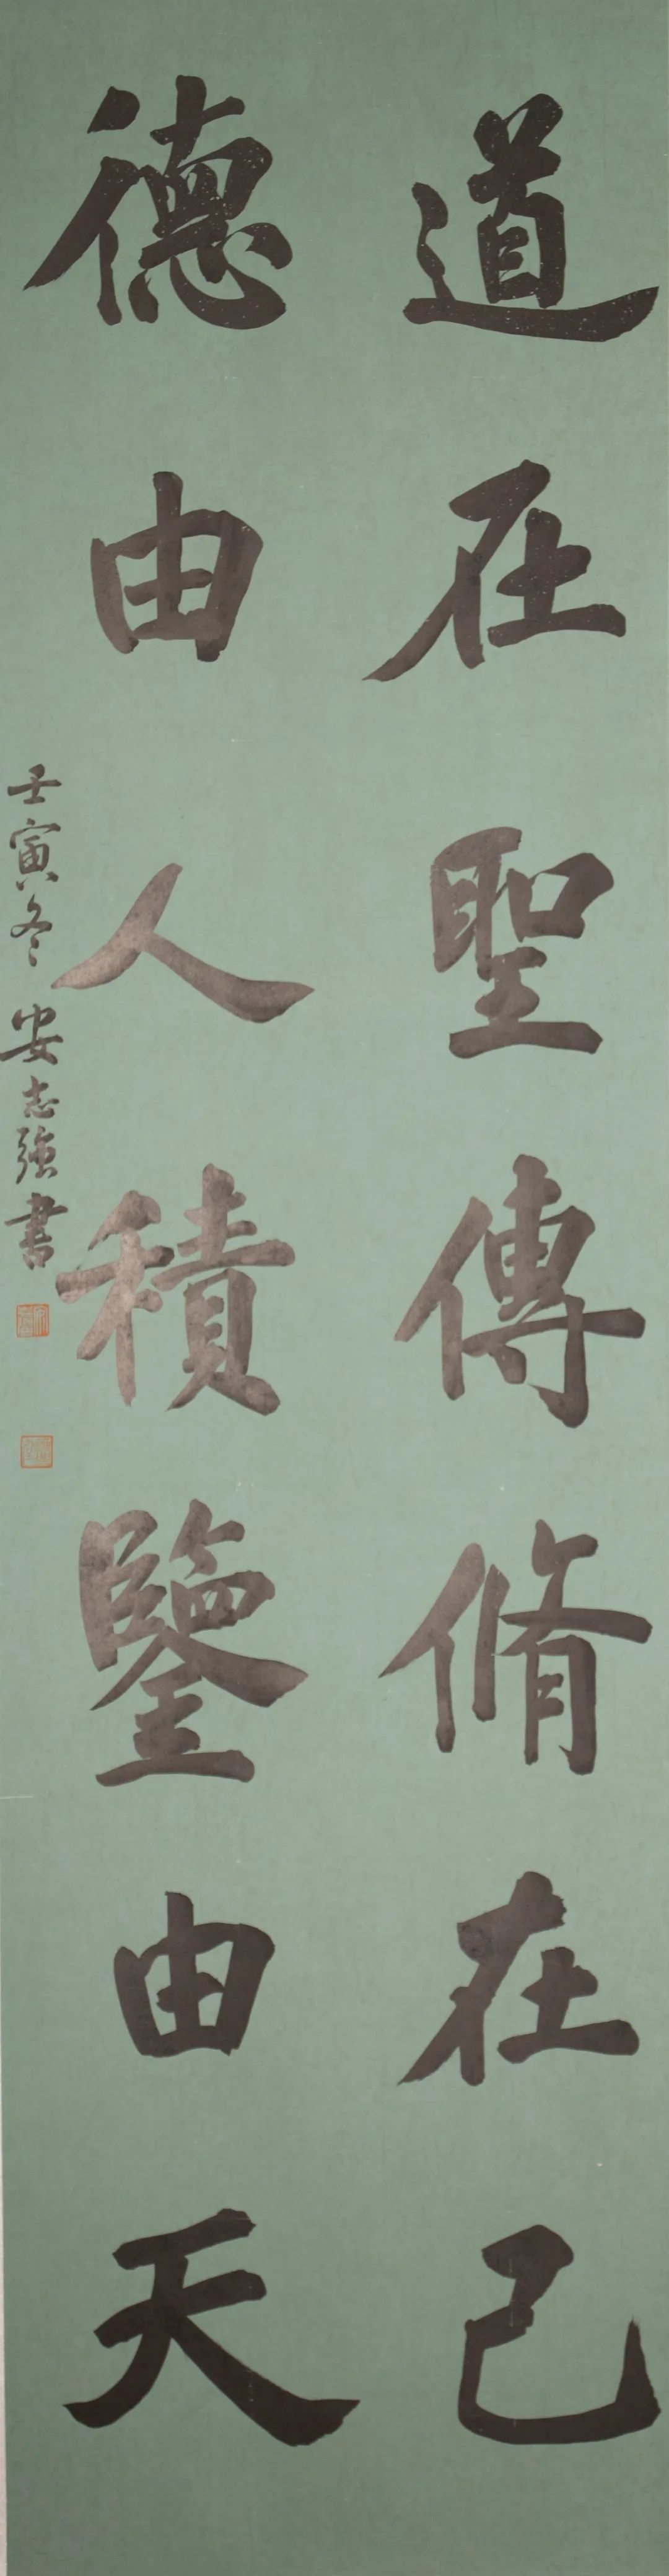 道在聖傳脩在己
德由人積鑒由天
壬寅冬安志強書